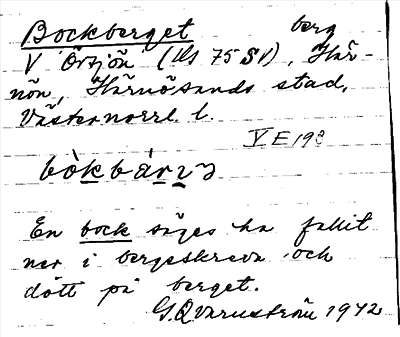 Bockberget berg
V Örsjön (Us 75 SV), Här-
nön, Härnösands stad,
Västernorrl. l.
V E 193
bòkbárɪ
En bock säges ha fallit
ner i bergsskreva och
dött på berget.
G. Qvarnström 1942